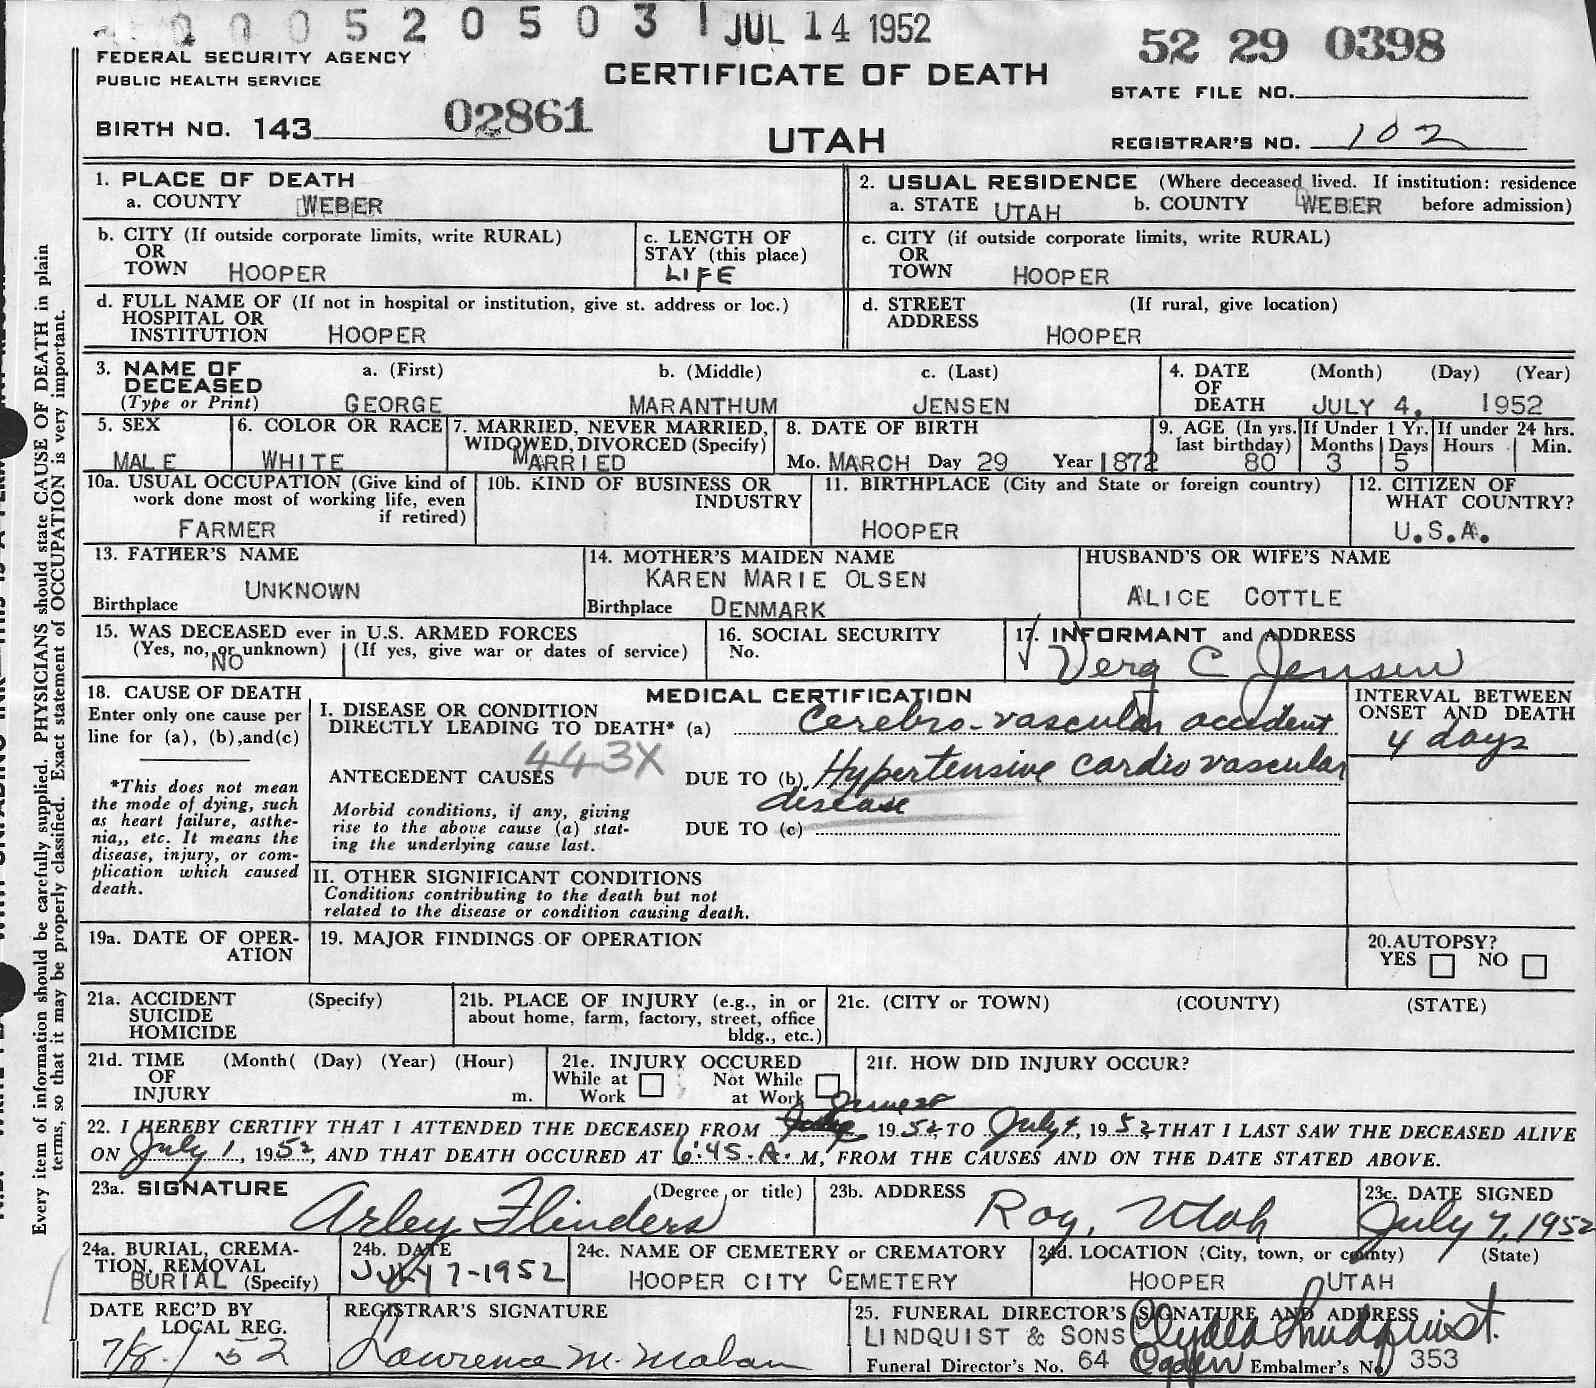 0 5 2 0 5 0 3 JUL 14 1952
52 29 0398
FEDERAL SECURITY AGENCY
PUBLIC HEALTH SERVICE
CERTIFICATE OF DEATH
STATE FILE NO.
BIRTH NO. 143 02861
UTAH
REGISTRAR'S NO. 102
1. PLACE OF DEATH
a. COUNTY WEBER
2. USUAL RESIDENCE (Where deceased lived. If institution: residence
a. STATE UTAH b. COUNTY WEBER before admission)
b. CITY (If outside corporate limits, write RURAL)
OR
TOWN HOOPER
c. LENGTH OF
STAY (this place)
LIFE
c. CITY (if outside corporate limits, write RURAL)
OR
TOWN HOOPER
d. FULL NAME OF (If not in hospital or institution, give st. address or loc.)
HOSPITAL OR
INSTITUTION HOOPER
d. STREET (If rural, give location)
ADDRESS HOOPER
3. NAME OF a. (First) b. (Middle) c. (Last)
DECEASED
(Type or Print) GEORGE MARANTHUM JENSEN
4. DATE (Month) (Day) (Year)
OF
DEATH JULY 4, 1952
5. SEX
MALE
6. COLOR OR RACE
WHITE
7. MARRIED, NEVER MARRIED,
WIDOWED, DIVORCED (Specify)
MARRIED
8. DATE OF BIRTH
Mo. MARCH Day 29 Year 1872
9. AGE (In yrs. last birthday) 80
If Under 1 Yr. Months 3 Days 5
If under 24 hrs. Hours Min.
10a. USUAL OCCUPATION (Give kind of
work done most of working life, even
if retired)
FARMER
10b. KIND OF BUSINESS OR
INDUSTRY
11. BIRTHPLACE (City and State or foreign country)
HOOPER
12. CITIZEN OF
WHAT COUNTRY?
U.S.A.
13. FATHER'S NAME
UNKNOWN
Birthplace
14. MOTHER'S MAIDEN NAME
KAREN MARIE OLSEN
Birthplace DENMARK
HUSBAND'S OR WIFE'S NAME
ALICE COTTLE
15. WAS DECEASED ever in U.S. ARMED FORCES
(Yes, no, or unknown) (If yes, give war or dates of service)
NO
16. SOCIAL SECURITY
No.
17. INFORMANT and ADDRESS
Verg C Jensen
18. CAUSE OF DEATH
Enter only one cause per
line for (a), (b), and (c)
*This does not mean
the mode of dying, such
as heart failure, asthe-
nia,, etc. It means the
disease, injury, or com-
plication which caused
death.
MEDICAL CERTIFICATION
I. DISEASE OR CONDITION
DIRECTLY LEADING TO DEATH* (a) Cerebro-vascular accident
443X
ANTECEDENT CAUSES DUE TO (b) Hypertensive cardio vascular
disease
Morbid conditions, if any, giving
rise to the above cause (a) stat-
ing the underlying cause last.
DUE TO (c)
INTERVAL BETWEEN
ONSET AND DEATH
4 days
II. OTHER SIGNIFICANT CONDITIONS
Conditions contributing to the death but not
related to the disease or condition causing death.
19a. DATE OF OPER-
ATION
19. MAJOR FINDINGS OF OPERATION
20. AUTOPSY?
YES NO
21a. ACCIDENT (Specify)
SUICIDE
HOMICIDE
21b. PLACE OF INJURY (e.g., in or
about home, farm, factory, street, office
bldg., etc.)
21c. (CITY or TOWN) (COUNTY) (STATE)
21d. TIME (Month( (Day) (Year) (Hour)
OF
INJURY m.
21e. INJURY OCCURED
While at Work Not While at Work
21f. HOW DID INJURY OCCUR?
22. I HEREBY CERTIFY THAT I ATTENDED THE DECEASED FROM 1952, TO July 4, 1952 THAT I LAST SAW THE DECEASED ALIVE
ON July 1, 1952, AND THAT DEATH OCCURED AT 6:45 A. M, FROM THE CAUSES AND ON THE DATE STATED ABOVE.
23a. SIGNATURE (Degree or title)
Arley Flinders
23b. ADDRESS
Roy, Utah
23c. DATE SIGNED
July 7, 1952
24a. BURIAL, CREMA-
TION, REMOVAL
BURIAL (Specify)
24b. DATE
JULY 7-1952
24c. NAME OF CEMETERY or CREMATORY
HOOPER CITY CEMETERY
24d. LOCATION (City, town, or county) (State)
HOOPER UTAH
DATE REC'D BY
LOCAL REG.
7/8/52
REGISTRAR'S SIGNATURE
Lawrence M. Malan
25. FUNERAL DIRECTOR'S SIGNATURE AND ADDRESS
LINDQUIST & SONS Clyde Lindquist.
Funeral Director's No. 64 Ogden Embalmer's No. 353
Every item of information should be carefully supplied. PHYSICIANS should state CAUSE OF DEATH in plain
terms, so that it may be properly classified. Exact statement of OCCUPATION is very important.